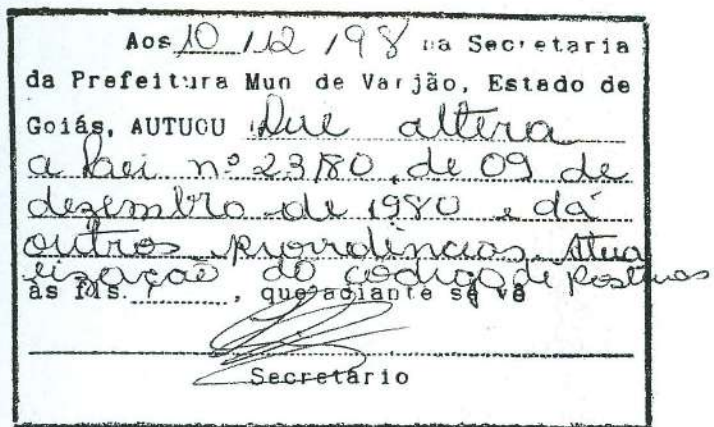 Aos 10 / 12 / 98 na Secretaria
da Prefeitura Mun de Varjão, Estado de
Goiás, AUTUOU Que altera
a Lei nº 23/80, de 09 de
dezembro de 1980 e dá
outros providências. Atua
lização do código de Posturas
às fls. , que adiante se vê
Secretário